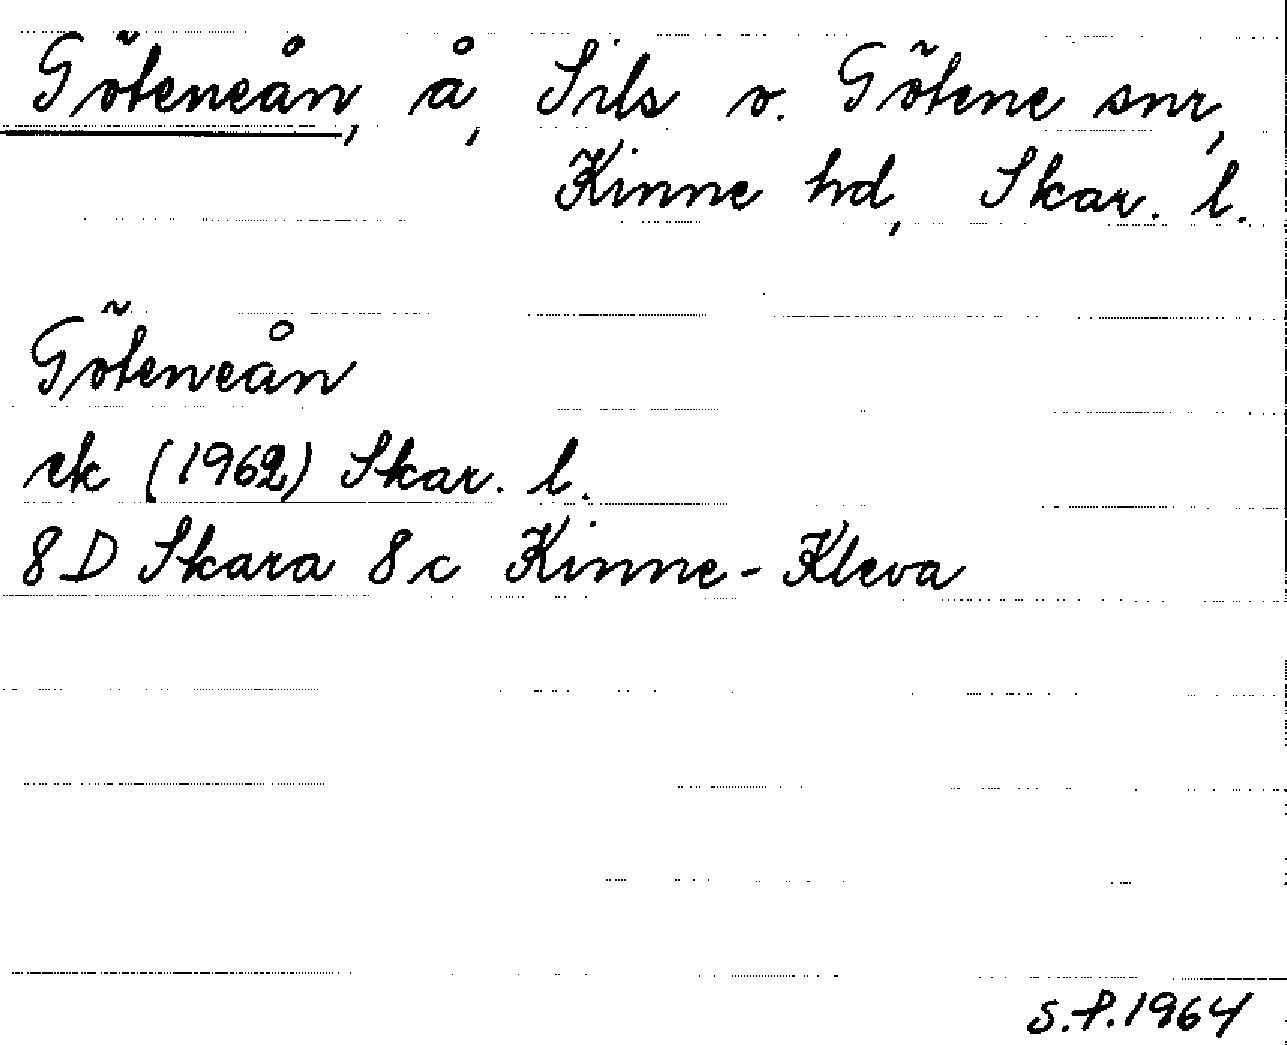 Göteneån, å, Sils o. Götene snr,
Kinne hd, Skar. l.
Göteneån
ek (1962) Skar. l.
8D Skara 8c Kinne-Kleva
S.F.1964